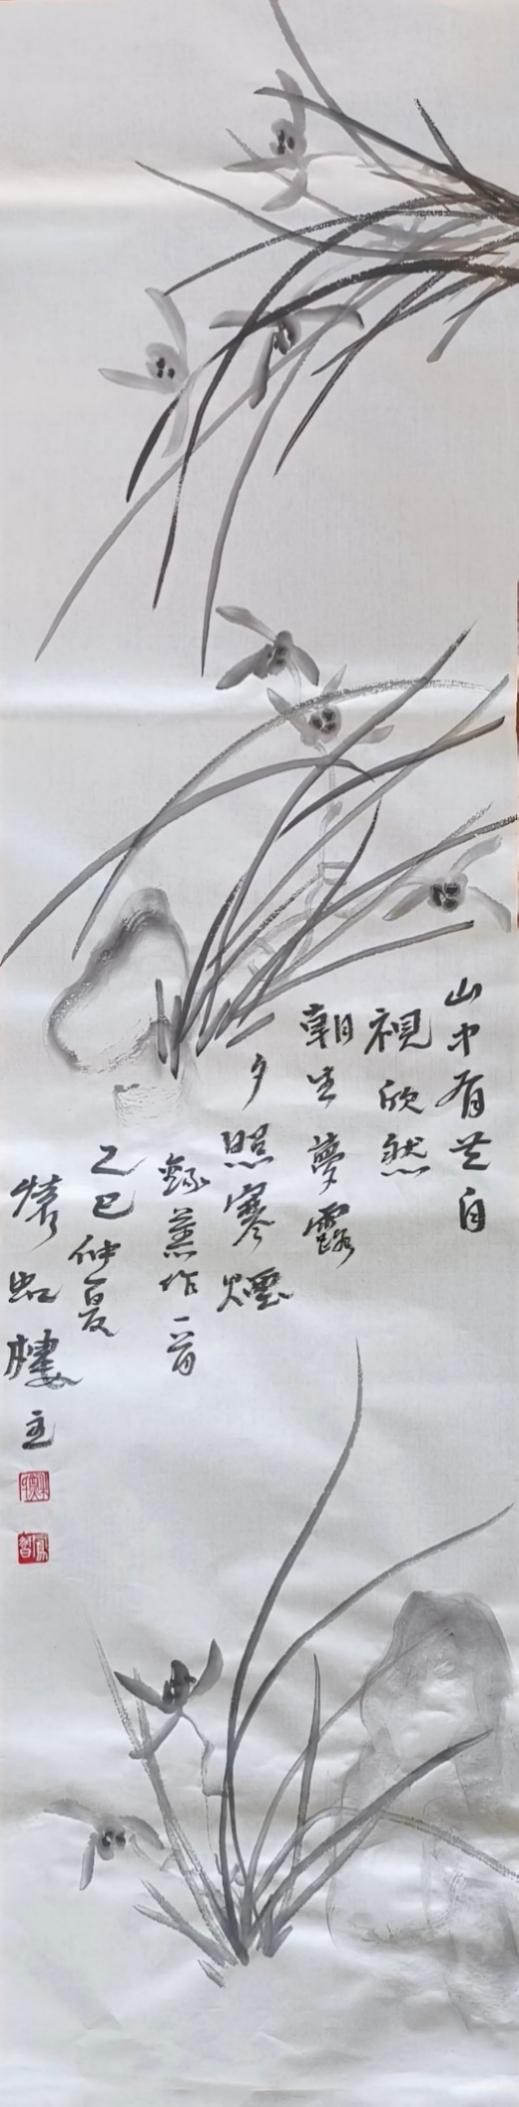 山中有芝自
視欣然
朝生夢露
夕照寒煙
錄羔作一首
乙巳仲夏
懷虹樓主